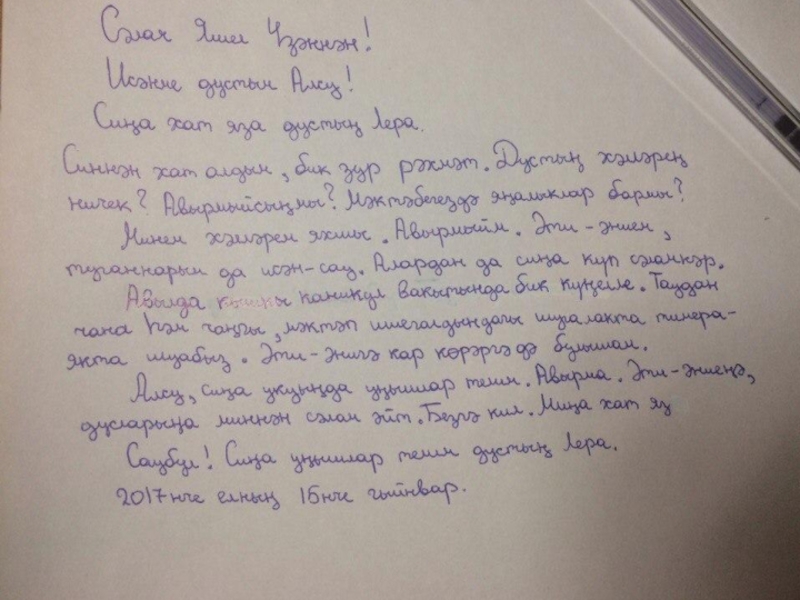 Сәлам Яшел Үзәннән!
Исәнме дустым Алсу!
Сиңа хат яза дустың Лера.
Синнән хат алдым, бик зур рәхмәт. Дустың хәлләрең
ничек? Авырмыйсыңмы? Мәктәбегездә яңалыклар бармы?
Минем хәлләрем яхшы. Авырмыйм. Әти-әнием,
туганнарым да исән-сау. Алардан да сиңа күп сәламнәр.
Авылда кышкы каникул вакытында бик күңелле. Таудан
чана һәм чаңгы, мәктәп ишегалдындагы шугалакта тимера-
якта шуабыз. Әти-әнигә кар көрәргә дә булышам.
Алсу, сиңа укуыңда уңышлар телим. Авырма. Әти-әниеңә,
дусларыңа миннән сәлам әйт. Безгә кил. Миңа хат яз
Саубул! Сиңа уңышлар телим дустың Лера.
2017нче елның 15нче гыйнвар.